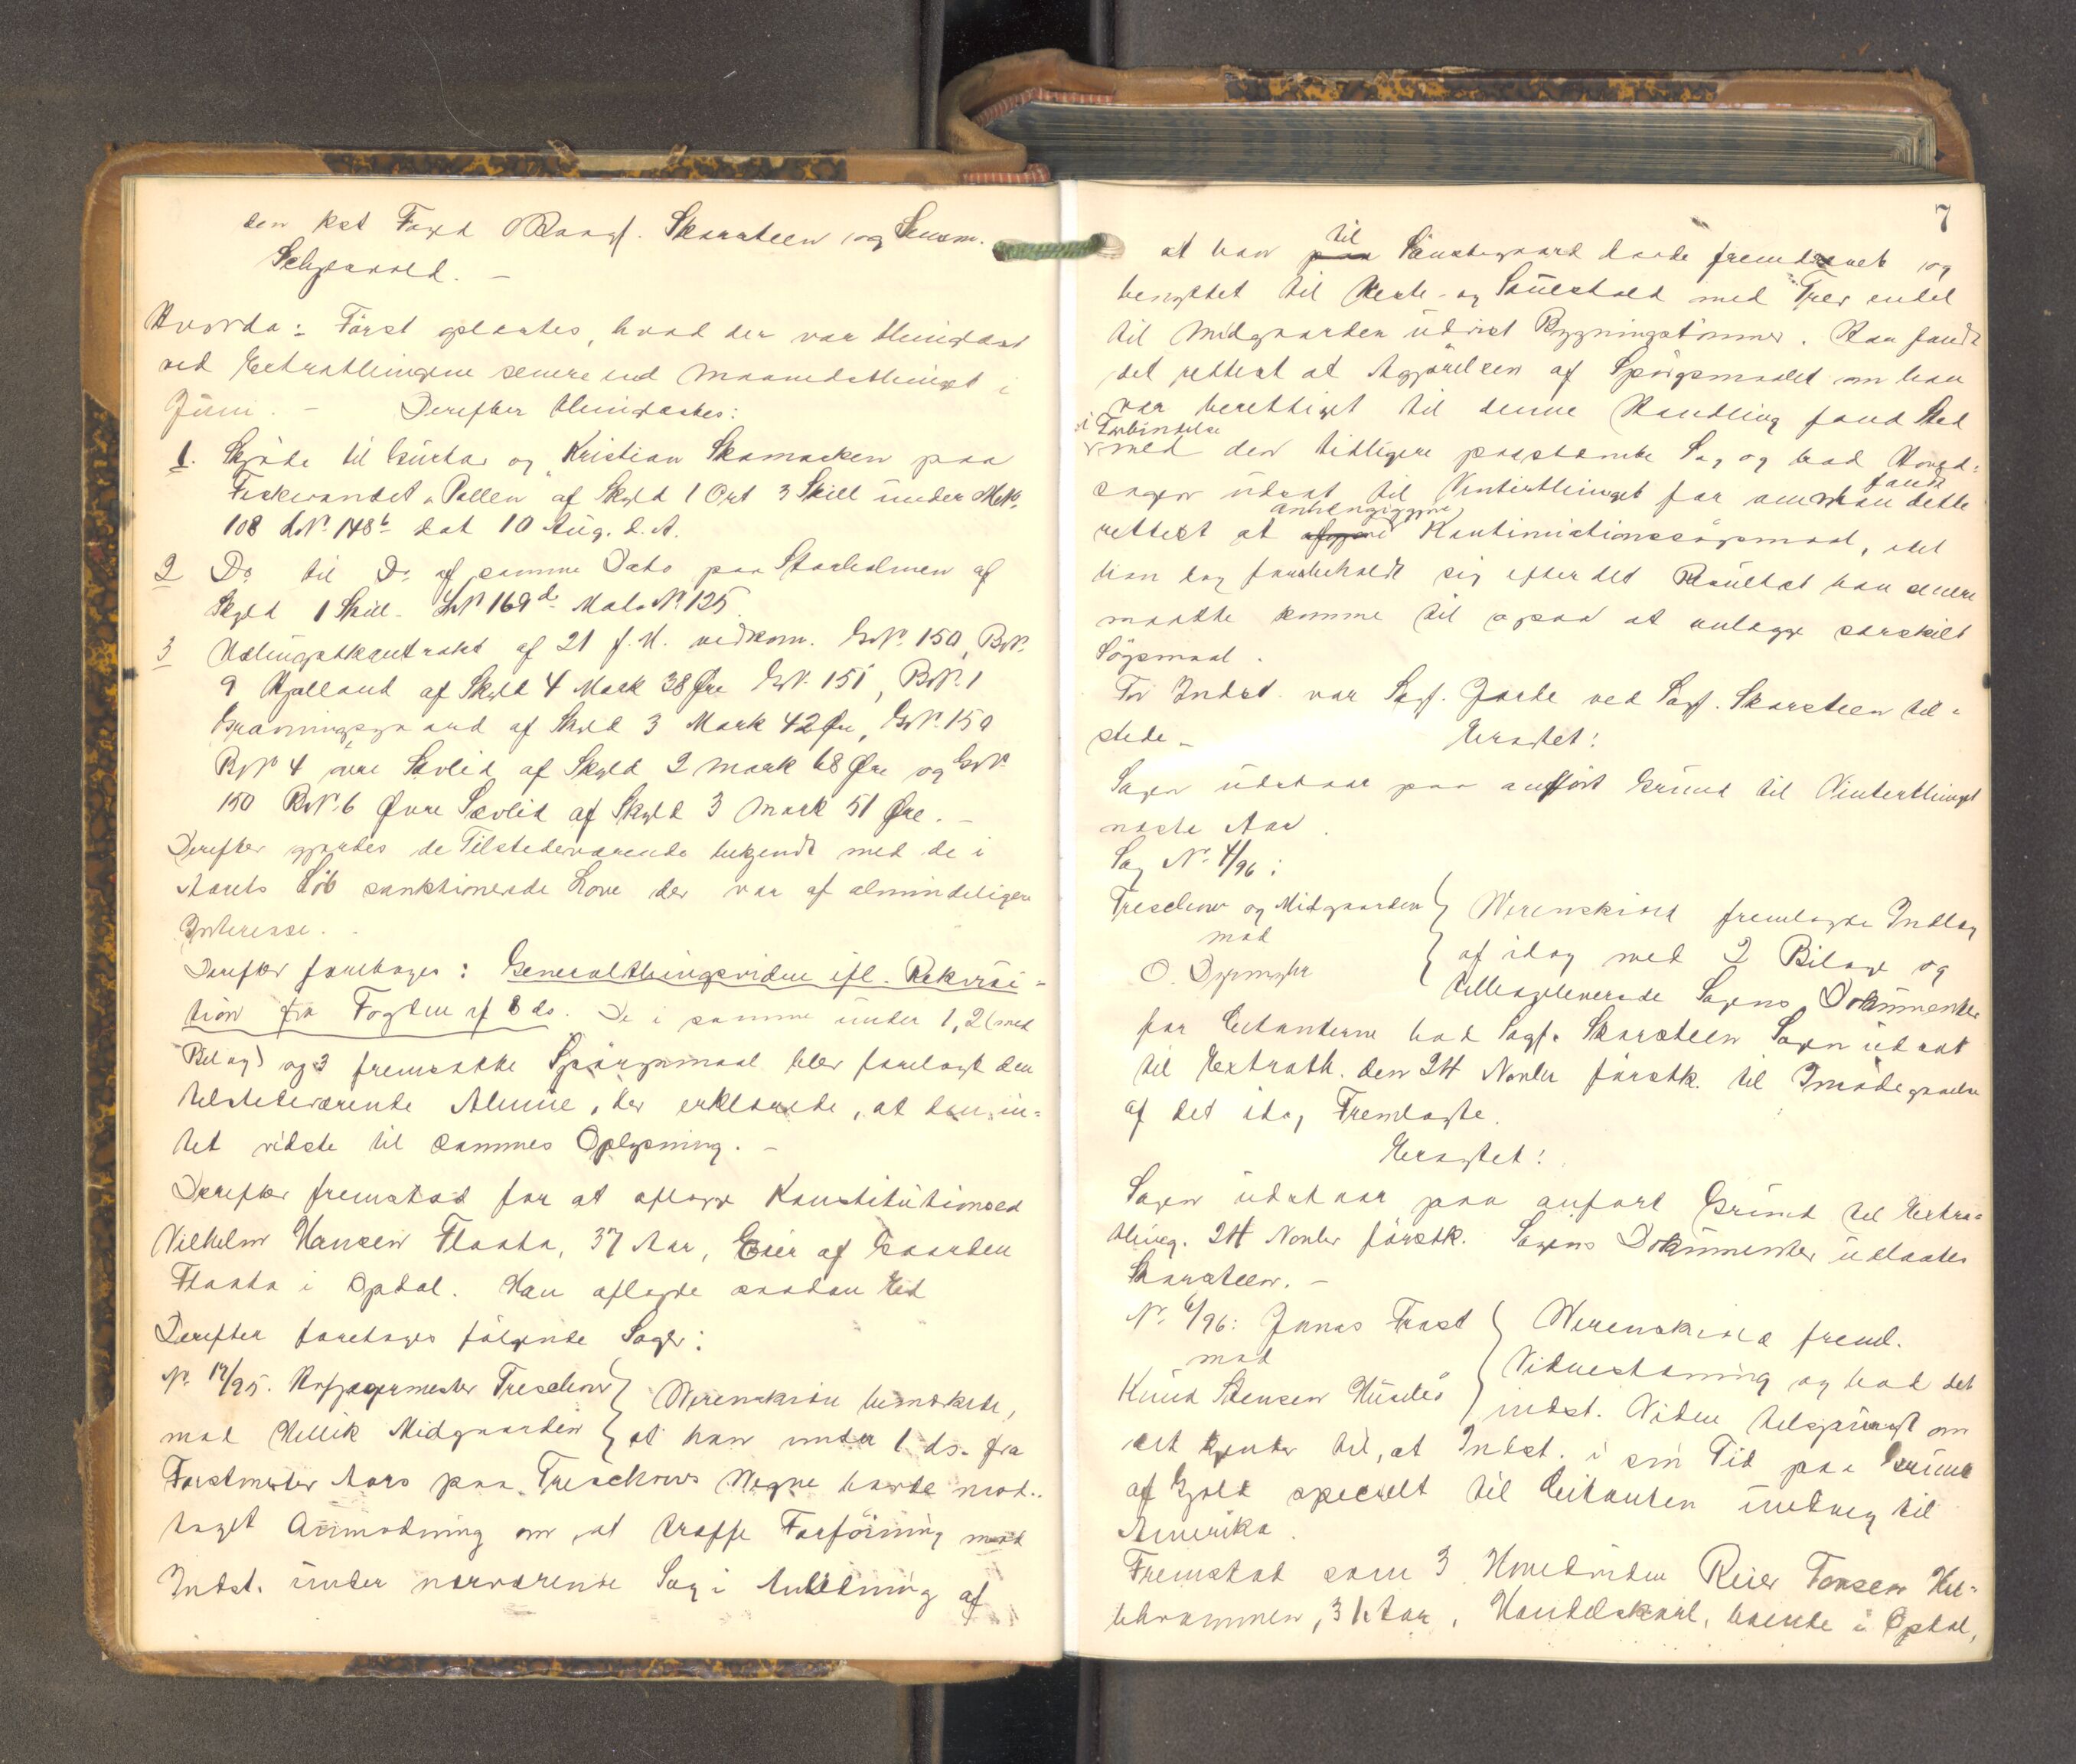 den kst Foged ORsagf. Skarsteen og Lensm.
Schjeavold. –
Hvorda: Først oplæstes, hvad der var thinglæst
ved Extrathingene senere end Maanedsthinget i
Juni. – Derefter thinglæstes:
1. Skjøde til Gustav og Kristian Skamarken paa
Fiskevandet "Pollen" af Skyld 1 Ort 3 Skill under M.N.
108 L.N. 148b dat 10 Aug. d. A.
2 Do til Do af samme Dato paa Storholmen af
Skyld 1 Skill. LN 169d Mats N. 125
3 Udlingskontrakt af 21 f. M. vedkom. GN. 150, BN.
9 Kjølland af Skyld 4 Mark 38 Øre GN. 151, BN. 1
Gravningsgaard af Skyld 3 Mark 42 Øre, GN. 150
BN 4 øvre Sævlid af Skyld 2 Mark 68 Øre og GN.
150 BN. 6 Øvre Sævlid af Skyld 3 Mark 51 Øre. –
Derefter gjordes de Tilstedeværende bekjendt med de i
Aarets Løb sanktionerede Love der var af almindeligere
Interesse.
Derefter foretoges: Generalthingsvidne ifl. Rekvisi-
tion fra Fogden af 8 ds. De i samme under 1, 2 (med
Bilag) og 3 fremsatte Spørgsmaal blev forelagt den
tilstedeværende Almue, der erklærede, at den in-
tet vidste til sammes Oplysning. –
Derefter fremstod for at aflægge Konstitutionsed
Vilhelm Hansen Flaata, 37 Aar, Eier af Gaarden
Flaata i Opdal. Han aflagde saadan Ed
Derefter foretoges følgende Sager:
N. 17/95. Hofjægermester Treschow } Werenskiold bemærkede,
mod Hellik Midgaarden } at han under 1 ds. fra
Forstmester Aars paa Treschows Vegne havde mod-
taget Anmodning om at træffe Forføining mod
Indst. under nærværende Sag i Anledning af
7
at han paa til Søndegaard havde fremdrevet og
benyttet til Heste- og Sauestald med Fler endel
til Midgaarden udvist Bygningstømmer. Han fandt
det rettest at Afgjørelsen af Spørgsmaalet om han
var berettiget til denne Handling fand Sted
i Forbindelse
med den tidligere paastævnte Sag og bad Hoved-
sagen udsat til Vinterthinget for om han fandt dette
rettest at anhængiggjøre Kontinuationssøgsmaal, idet
han dog forbeholdt sig efter det Resultat han senere
maatte komme til ogsaa at anlægge særskilt
Søgsmaal.
For Indst. var Sagf. Juell ved Sagf. Skarsteen til-
stede – Eragtet:
Sagen udstaar paa anført Grund til Vinterthinget
næste Aar.
Sag N. 4/96:
Treschow og Midgaarden } Werenskiold fremlagde Indlæg
mod } af idag med 2 Bilage og
O. } tilbageleverede Sagens Dokumenter
for Citanterne bad Sagf. Skarsteen Sagen udsat
til Extrath. den 24 Novbr førstk. til Imødegaaelse
af det idag Fremlagte.
Eragtet:
Sagen udstaar paa anført Grund til Extra-
thing. 24 Novbr førstk. Sagens Dokumenter udlaates
Skarsteen. –
N. 6/96: Jonas Frost } Werenskiold freml.
mod } Vidnestævning og bad det
Knud Steensen } indst. Vidne tilspurgt om
det kjender til, at Indst. i sin Tid paa Grund
af Gjæld specielt til Citanten undveg til
Amerika.
Fremstod som 3 Hovedvidne Reier Tonsen
31 Aar, Handelskarl, boende i Opdal,